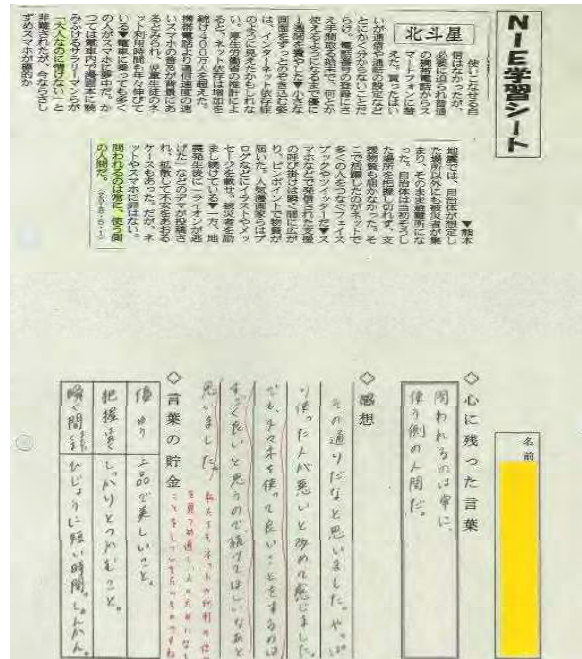 NIE学習シート
北斗星
使いこなせる自
信はなかったが、
必要に迫られ普通
の携帯電話からス
マートフォンに替
えた。買ったはい
いが通信や通話の設定など
とにかく分からないことだ
らけ。電話番号の登録にさ
え手間取る始末で、何とか
使えるようになるまで優に
1週間を費やした▼小さな
画面をずっとのぞき込む姿
は、インターネット依存症
のように見えたかもしれな
い。厚生労働省の推計によ
ると、ネット依存は増加を
続け400万人を超えた。
携帯電話より通信速度の速
いスマホの普及が背景にあ
るとみられ、児童生徒のネ
ット利用時間も年々伸びて
いる▼電車に乗っても多く
の人がスマホに夢中だ。か
つては電車内で漫画本に読
みふけるサラリーマンらが
「大人なのに情けない」と
非難されたが、今ならさし
ずめスマホが標的か
▼熊本
地震では、自治体が想定し
た場所以外にも被災者が集
まり、そのまま避難所にな
った。自治体は当初そうし
た場所を把握し切れず、支
援物資も届かなかった。そ
こで活躍したのがネットで
多くの人をつなぐフェイス
ブックやツイッターだ▼ス
マホなどで発信された支援
の呼び掛けは瞬く間に広が
り、ピンポイントで物資が
届いた。人気漫画家らはブ
ログなどにイラストやメッ
セージを載せ、被災者を励
まし続けている▼一方、地
震発生後に「ライオンが逃
げた」などのデマが投稿さ
れ、拡散して不安をあおる
ケースもあった。だが、ネ
ットやスマホに罪はない。
問われるのは常に、使う側
の人間だ。
名前
◇心に残った言葉
問われるのは常に、
使う側の人間だ。
◇感想
その通りだなと思いました。やっぱ
り使った人が悪いと改めて感じました。
でも、多々本を使って良いことをするのは
すごく良いと思うので続けてほしいなあと
思いました。
◇言葉の貯金
優 ゆう 上品で美しいこと。
把握 はあく しっかりとつかむこと。
瞬く間 またたくま ひじょうに短い時間。しゅんかん。